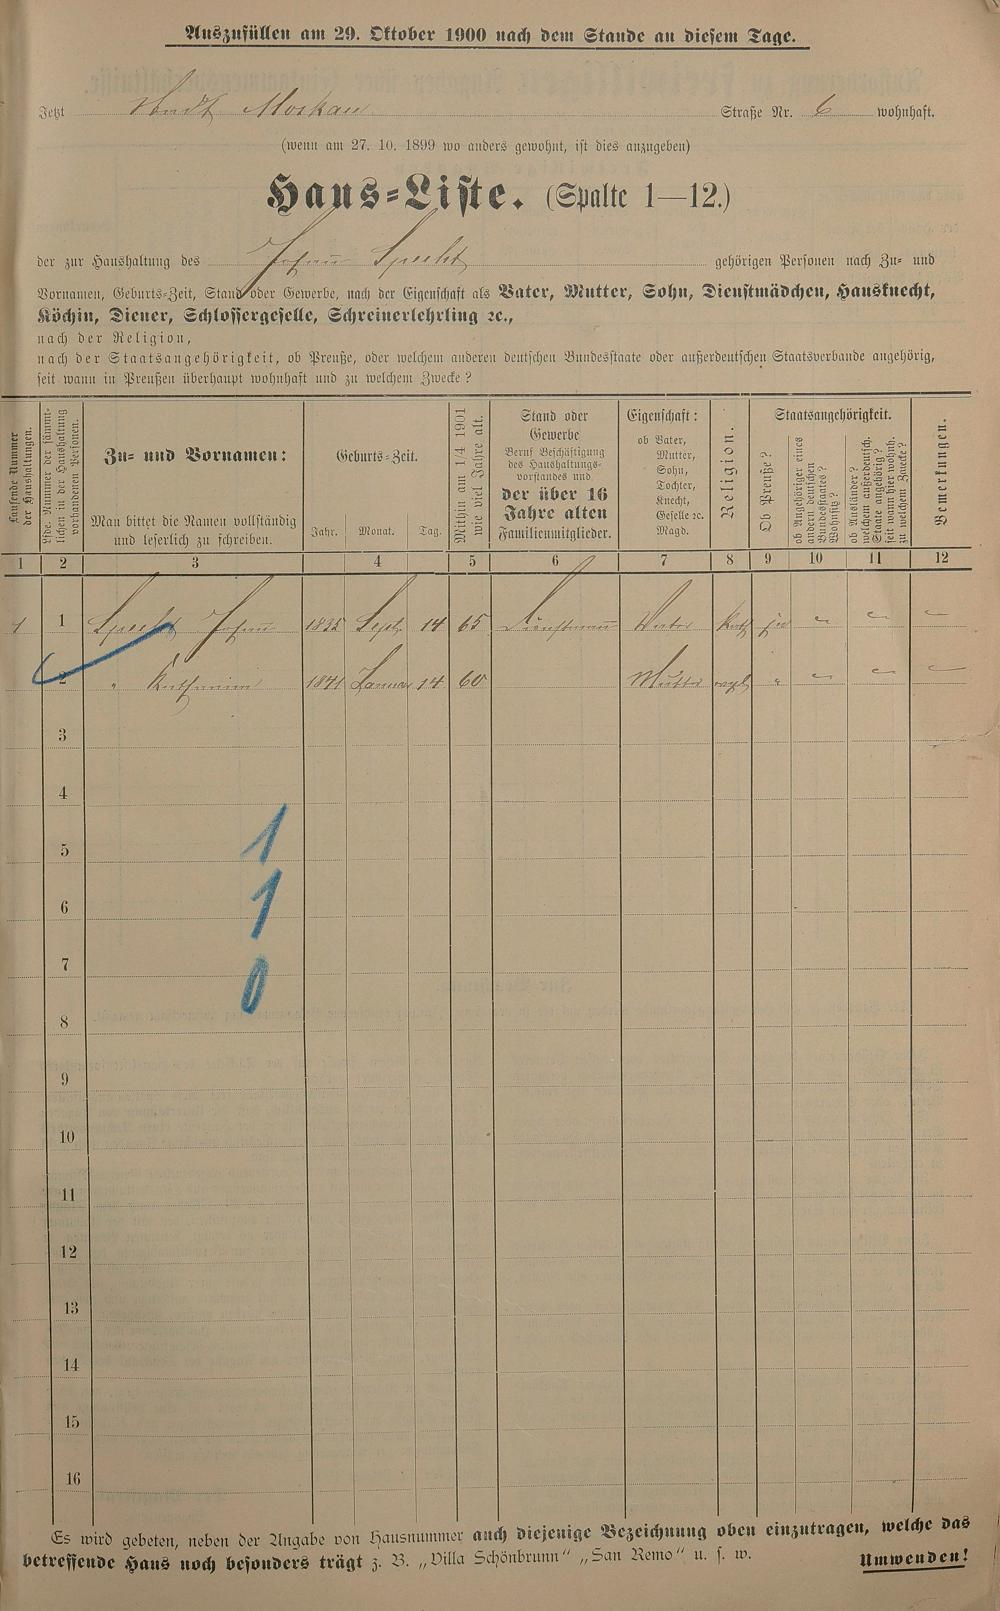 Auszufüllen am 29. Oktober 1900 nach dem Stande an diesem Tage.
Jetzt Stadt Moskau Straße Nr. 6 wohnhaft.
(wenn am 27. 10. 1899 wo anders gewohnt, ist dies anzugeben)
Haus-Liste. (Spalte 1—12.)
der zur Haushaltung des Johann Specht gehörigen Personen nach Zu- und
Vornamen, Geburts-Zeit, Stand oder Gewerbe, nach der Eigenschaft als Vater, Mutter, Sohn, Dienstmädchen, Hausknecht,
Köchin, Diener, Schlossergeselle, Schreinerlehrling ꝛc.,
nach der Religion,
nach der Staatsangehörigkeit, ob Preuße, oder welchem anderen deutschen Bundesstaate oder außerdeutschen Staatsverbande angehörig,
seit wann in Preußen überhaupt wohnhaft und zu welchem Zwecke?
Laufende Nummer der Haushaltungen.
Lfde. Nummer der sämmtlichen in der Haushaltung vorhandenen Personen.
Zu- und Vornamen:
Man bittet die Namen vollständig
und leserlich zu schreiben.
Geburts-Zeit.
Jahr. Monat. Tag.
Mithin am 1/4 1901
wie viel Jahre alt.
Stand oder
Gewerbe
Beruf Beschäftigung
des Haushaltungs-
vorstandes und
der über 16
Jahre alten
Familienmitglieder.
Eigenschaft:
ob Vater,
Mutter,
Sohn,
Tochter,
Knecht,
Geselle ꝛc.
Magd.
Religion.
Staatsangehörigkeit.
Ob Preuße?
ob Angehöriger eines
andern deutschen
Bundesstaates?
Wohnsitz?
ob Ausländer?
welchem außerdeutsch.
Staate angehörig?
seit wann hier wohnh.
zu welchem Zwecke?
Bemerkungen.
1 2 3 4 5 6 7 8 9 10 11 12
1 1 Specht Johann 1835 Sept. 14 65 Dienstmann Vater kath ja — — —
2 " Katharina 1841 Januar 14 60 Mutter evgl " — — —
3
4
5 1
6 1
7 0
8
9
10
11
12
13
14
15
16
Es wird gebeten, neben der Angabe von Hausnummer auch diejenige Bezeichnung oben einzutragen, welche das
betreffende Haus noch besonders trägt z. B. „Villa Schönbrunn“ „San Remo“ u. s. w. Umwenden!